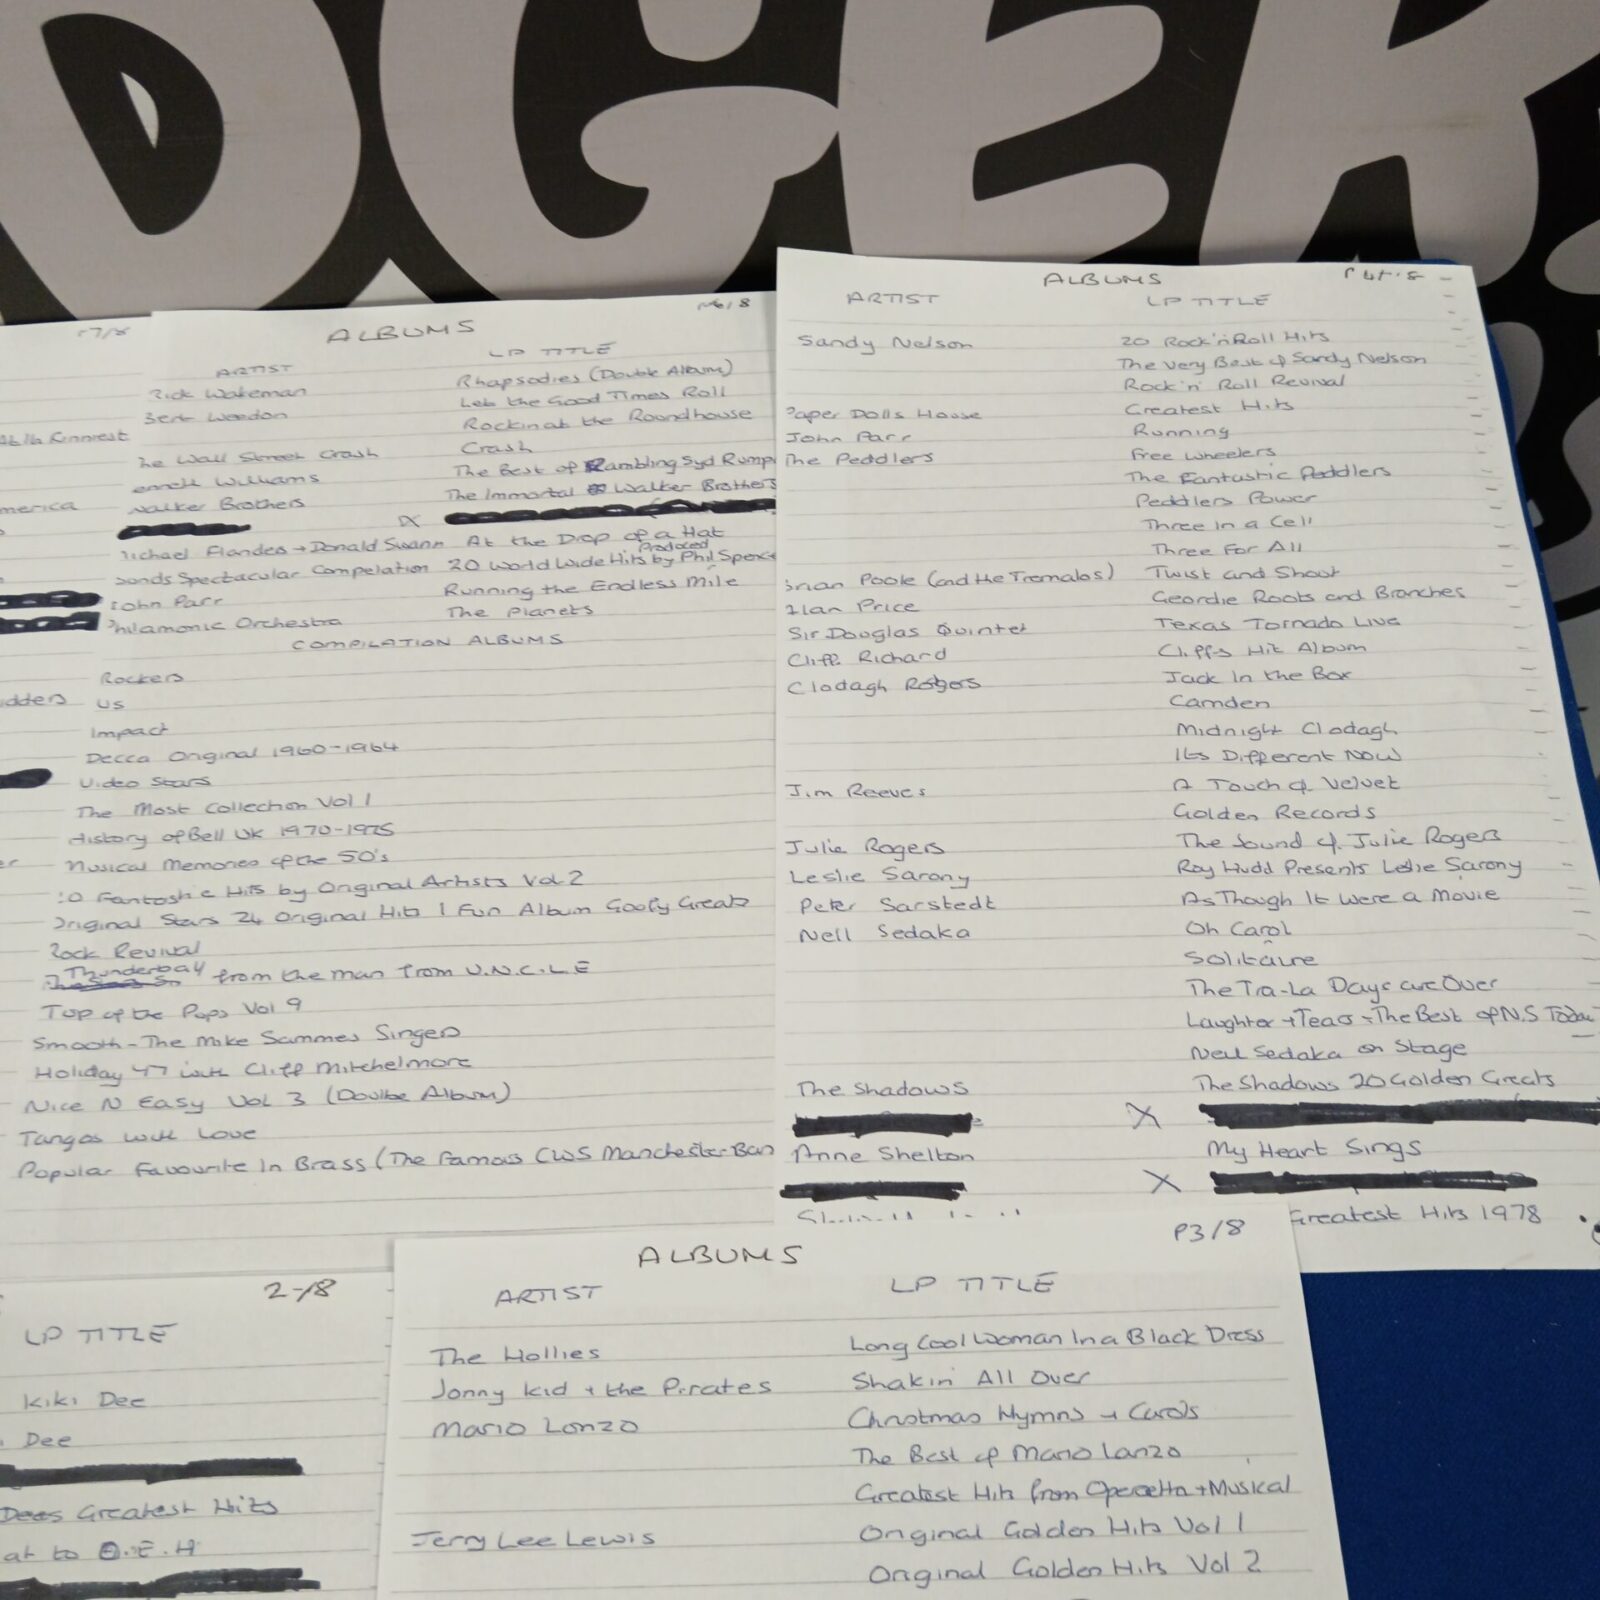 ALBUMS
ARTIST LP TITLE
Rick Wakeman Rhapsodies (Double Album)
Bert Weedon Let the Good Times Roll
Rockin at the Roundhouse
he Wall Street Crash Crash
enneth Williams The Best of Rambling Syd Rumpo
Walker Brothers The Immortal Walker Brothers
X
Michael Flandes + Donald Swann At the Drop of a Hat
Sounds Spectacular Compelation 20 World Wide Hits Produced by Phil Spector
John Parr Running the Endless Mile
Philamonic Orchestra The Planets
COMPILATION ALBUMS
Rockers
US
Impact
Decca Original 1960-1964
Video Stars
The Most Collection Vol 1
History of Bell UK 1970-1975
Musical Memories of the 50's
20 Fantastic Hits by Original Artists Vol 2
Original Stars 24 Original Hits 1 Fun Album Goofy Greats
Rock Revival
Thunderbay from the man from U.N.C.L.E
Top of the Pops Vol 9
Smooth - The Mike Sammes Singers
Holiday 77 with Cliff Mitchelmore
Nice N Easy Vol 3 (Doulbe Album)
Tangos with Love
Popular Favourite In Brass (The Famous CWS Manchester Ban
merica
idders
ALBUMS
ARTIST LP TITLE
Sandy Nelson 20 Rock'n'Roll Hits
The Very Best of Sandy Nelson
Rock 'n' Roll Revival
Paper Dolls House Greatest Hits
John Parr Running
The Peddlers Free Wheelers
The Fantastic Peddlers
Peddlers Power
Three In a Cell
Three For All
Brian Poole (and the Tromalos) Twist and Shout
Alan Price Geordie Roots and Branches
Sir Douglas Quintet Texas Tornado Live
Cliff Richard Cliffs Hit Album
Clodagh Rogers Jack In the Box
Camden
Midnight Clodagh
Its Different Now
Jim Reeves A Touch of Velvet
Golden Records
Julie Rogers The Sound of Julie Rogers
Leslie Sarony Roy Hudd Presents Leslie Sarony
Peter Sarstedt As Though It Were a Movie
Neil Sedaka Oh Carol
Solitaire
The Tra-La Days are Over
Laughter + Tears - The Best of N.S Today
Neil Sedaka on Stage
The Shadows The Shadows 20 Golden Greats
X
Anne Shelton My Heart Sings
X
Greatest Hits 1978
2-/8
LP TITLE
Kiki Dee
Dee
Dees Greatest Hits
at to O.E.H
P3/8
ALBUMS
ARTIST LP TITLE
The Hollies Long Cool Woman In a Black Dress
Jonny Kid + the Pirates Shakin All Over
Mario Lonzo Christmas Hymns + Carols
The Best of Mario Lanzo
Greatest Hits from Operetta + Musical
Jerry Lee Lewis Original Golden Hits Vol 1
Original Golden Hits Vol 2